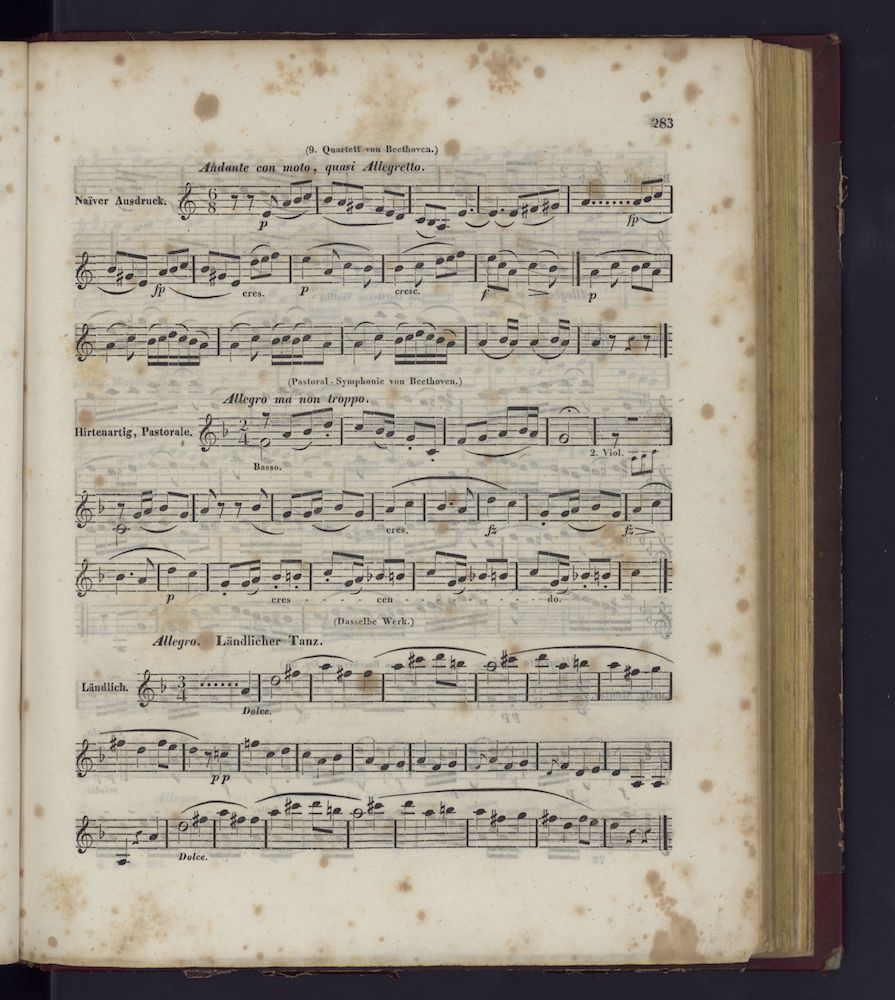 283
(9. Quartett von Beethoven.)
Andante con moto, quasi Allegretto.
Naïver Ausdruck.
6 8
p
fp
fp cres. p cresc. f p
(Pastoral-Symphonie von Beethoven.)
Allegro ma non troppo.
Hirtenartig, Pastorale.
2 4
Basso.
2. Viol.
cres. fz fz
p cres - - - - cen - - - - do.
(Dasselbe Werk.)
Allegro. Ländlicher Tanz.
Ländlich.
3 4
Dolce.
pp
Dolce.